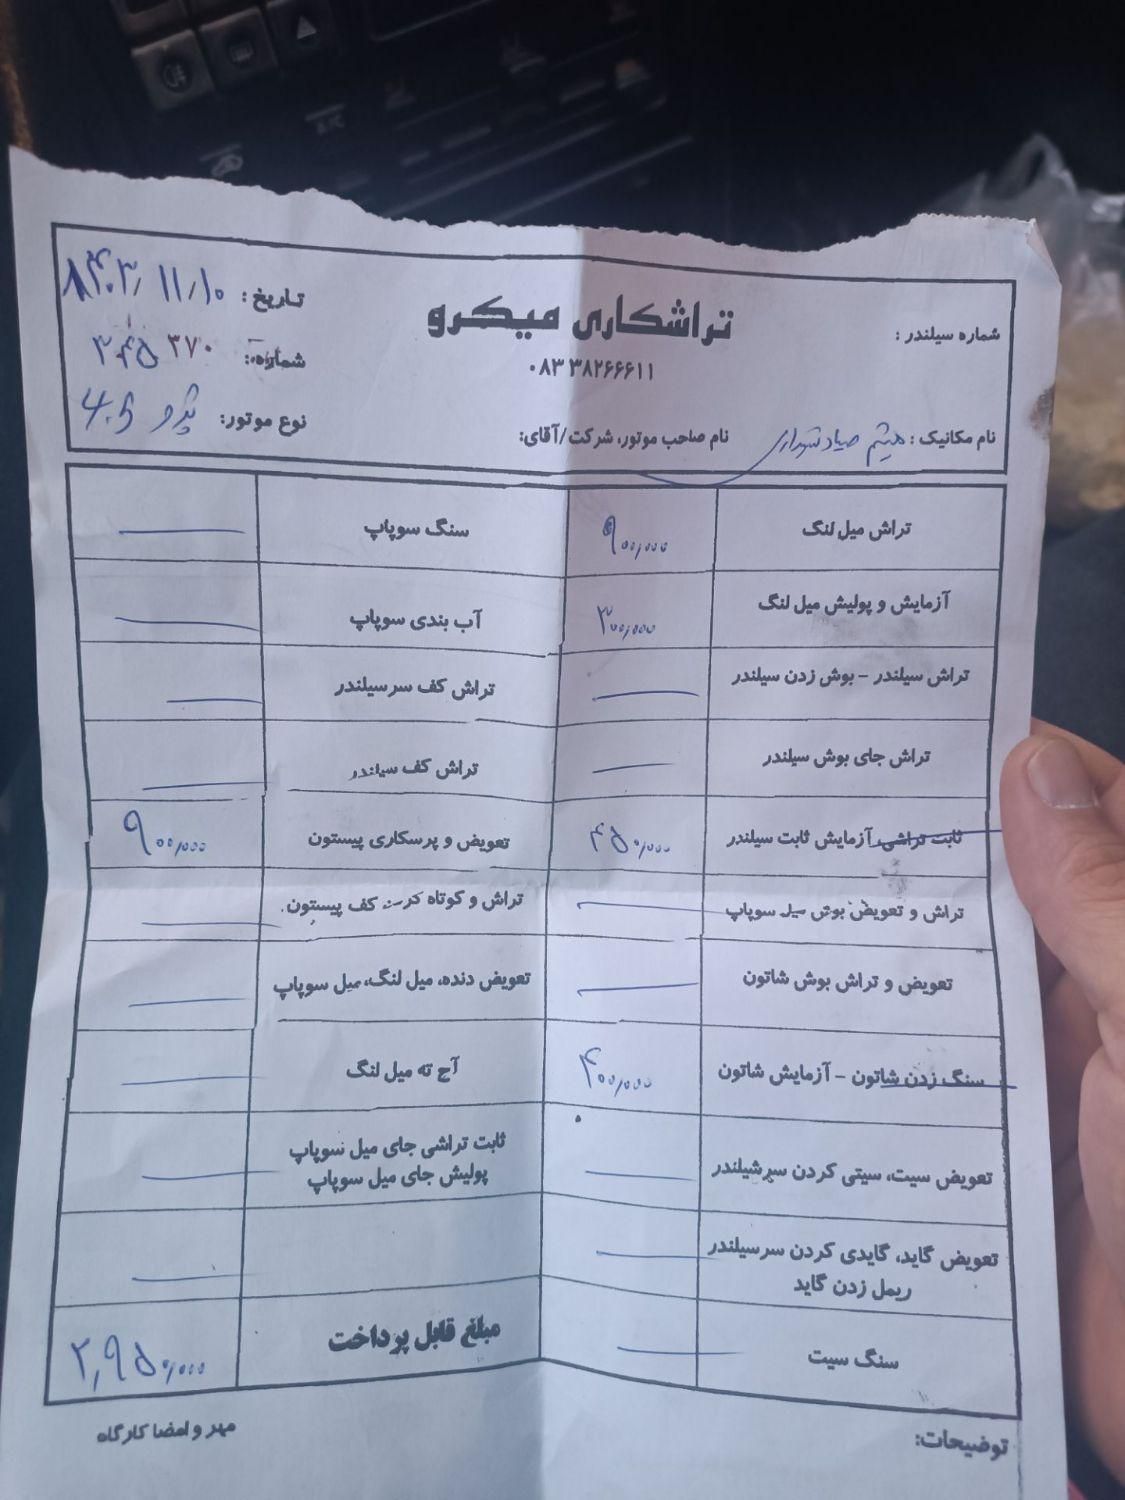 شماره سیلندر :
تراشکاری میکرو
تاریخ : ۱۴۰۳/۱۱/۱۰
۰۸۳ ۳۸۲۶۶۶۱۱
شماره: ۳۷۰
نام مکانیک : میثم صیاد
نام صاحب موتور، شرکت/آقای:
نوع موتور: پژو ۴۰۵
تراش میل لنگ ۹۰۰,۰۰۰ سنگ سوپاپ
آزمایش و پولیش میل لنگ ۳۰۰,۰۰۰ آب بندی سوپاپ
تراش سیلندر – بوش زدن سیلندر تراش کف سرسیلندر
تراش جای بوش سیلندر تراش کف سیلندر
ثابت تراشی آزمایش ثابت سیلندر ۴۵۰,۰۰۰ تعویض و پرسکاری پیستون ۹۰۰,۰۰۰
تراش و تعویض بوش میل سوپاپ تراش و کوتاه کردن کف پیستون
تعویض و تراش بوش شاتون تعویض دنده، میل لنگ، میل سوپاپ
سنگ زدن شاتون – آزمایش شاتون ۴۰۰,۰۰۰ آج ته میل لنگ
تعویض سیت، سیتی کردن سرسیلندر ثابت تراشی جای میل سوپاپ
پولیش جای میل سوپاپ
تعویض گاید، گایدی کردن سرسیلندر
ریمل زدن گاید
سنگ سیت مبلغ قابل پرداخت ۲,۹۵۰,۰۰۰
توضیحات: مهر و امضا کارگاه